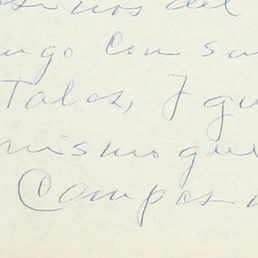 nos del
con su
Tales, y qu
mismo que
Campos